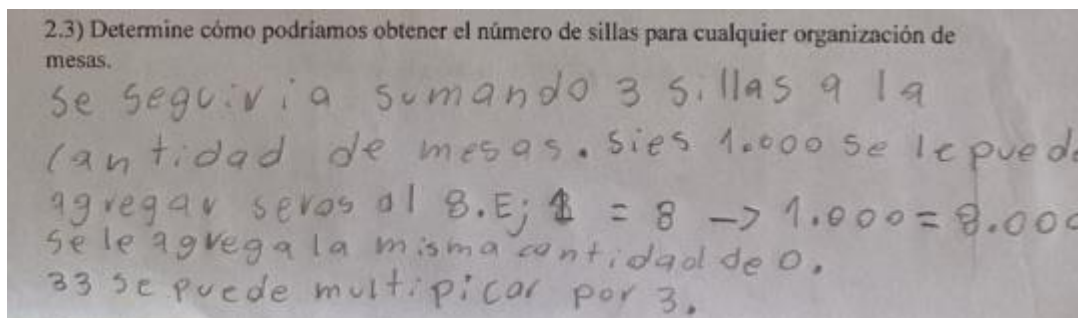 2.3) Determine cómo podríamos obtener el número de sillas para cualquier organización de
mesas.
Se seguiria sumando 3 sillas a la
cantidad de mesas. sies 1.000 se le puede
agregar seros al 8. Ej 1 = 8 -> 1.000 = 8.000
se le agrega la misma cantidad de 0.
33 se puede multipicar por 3.